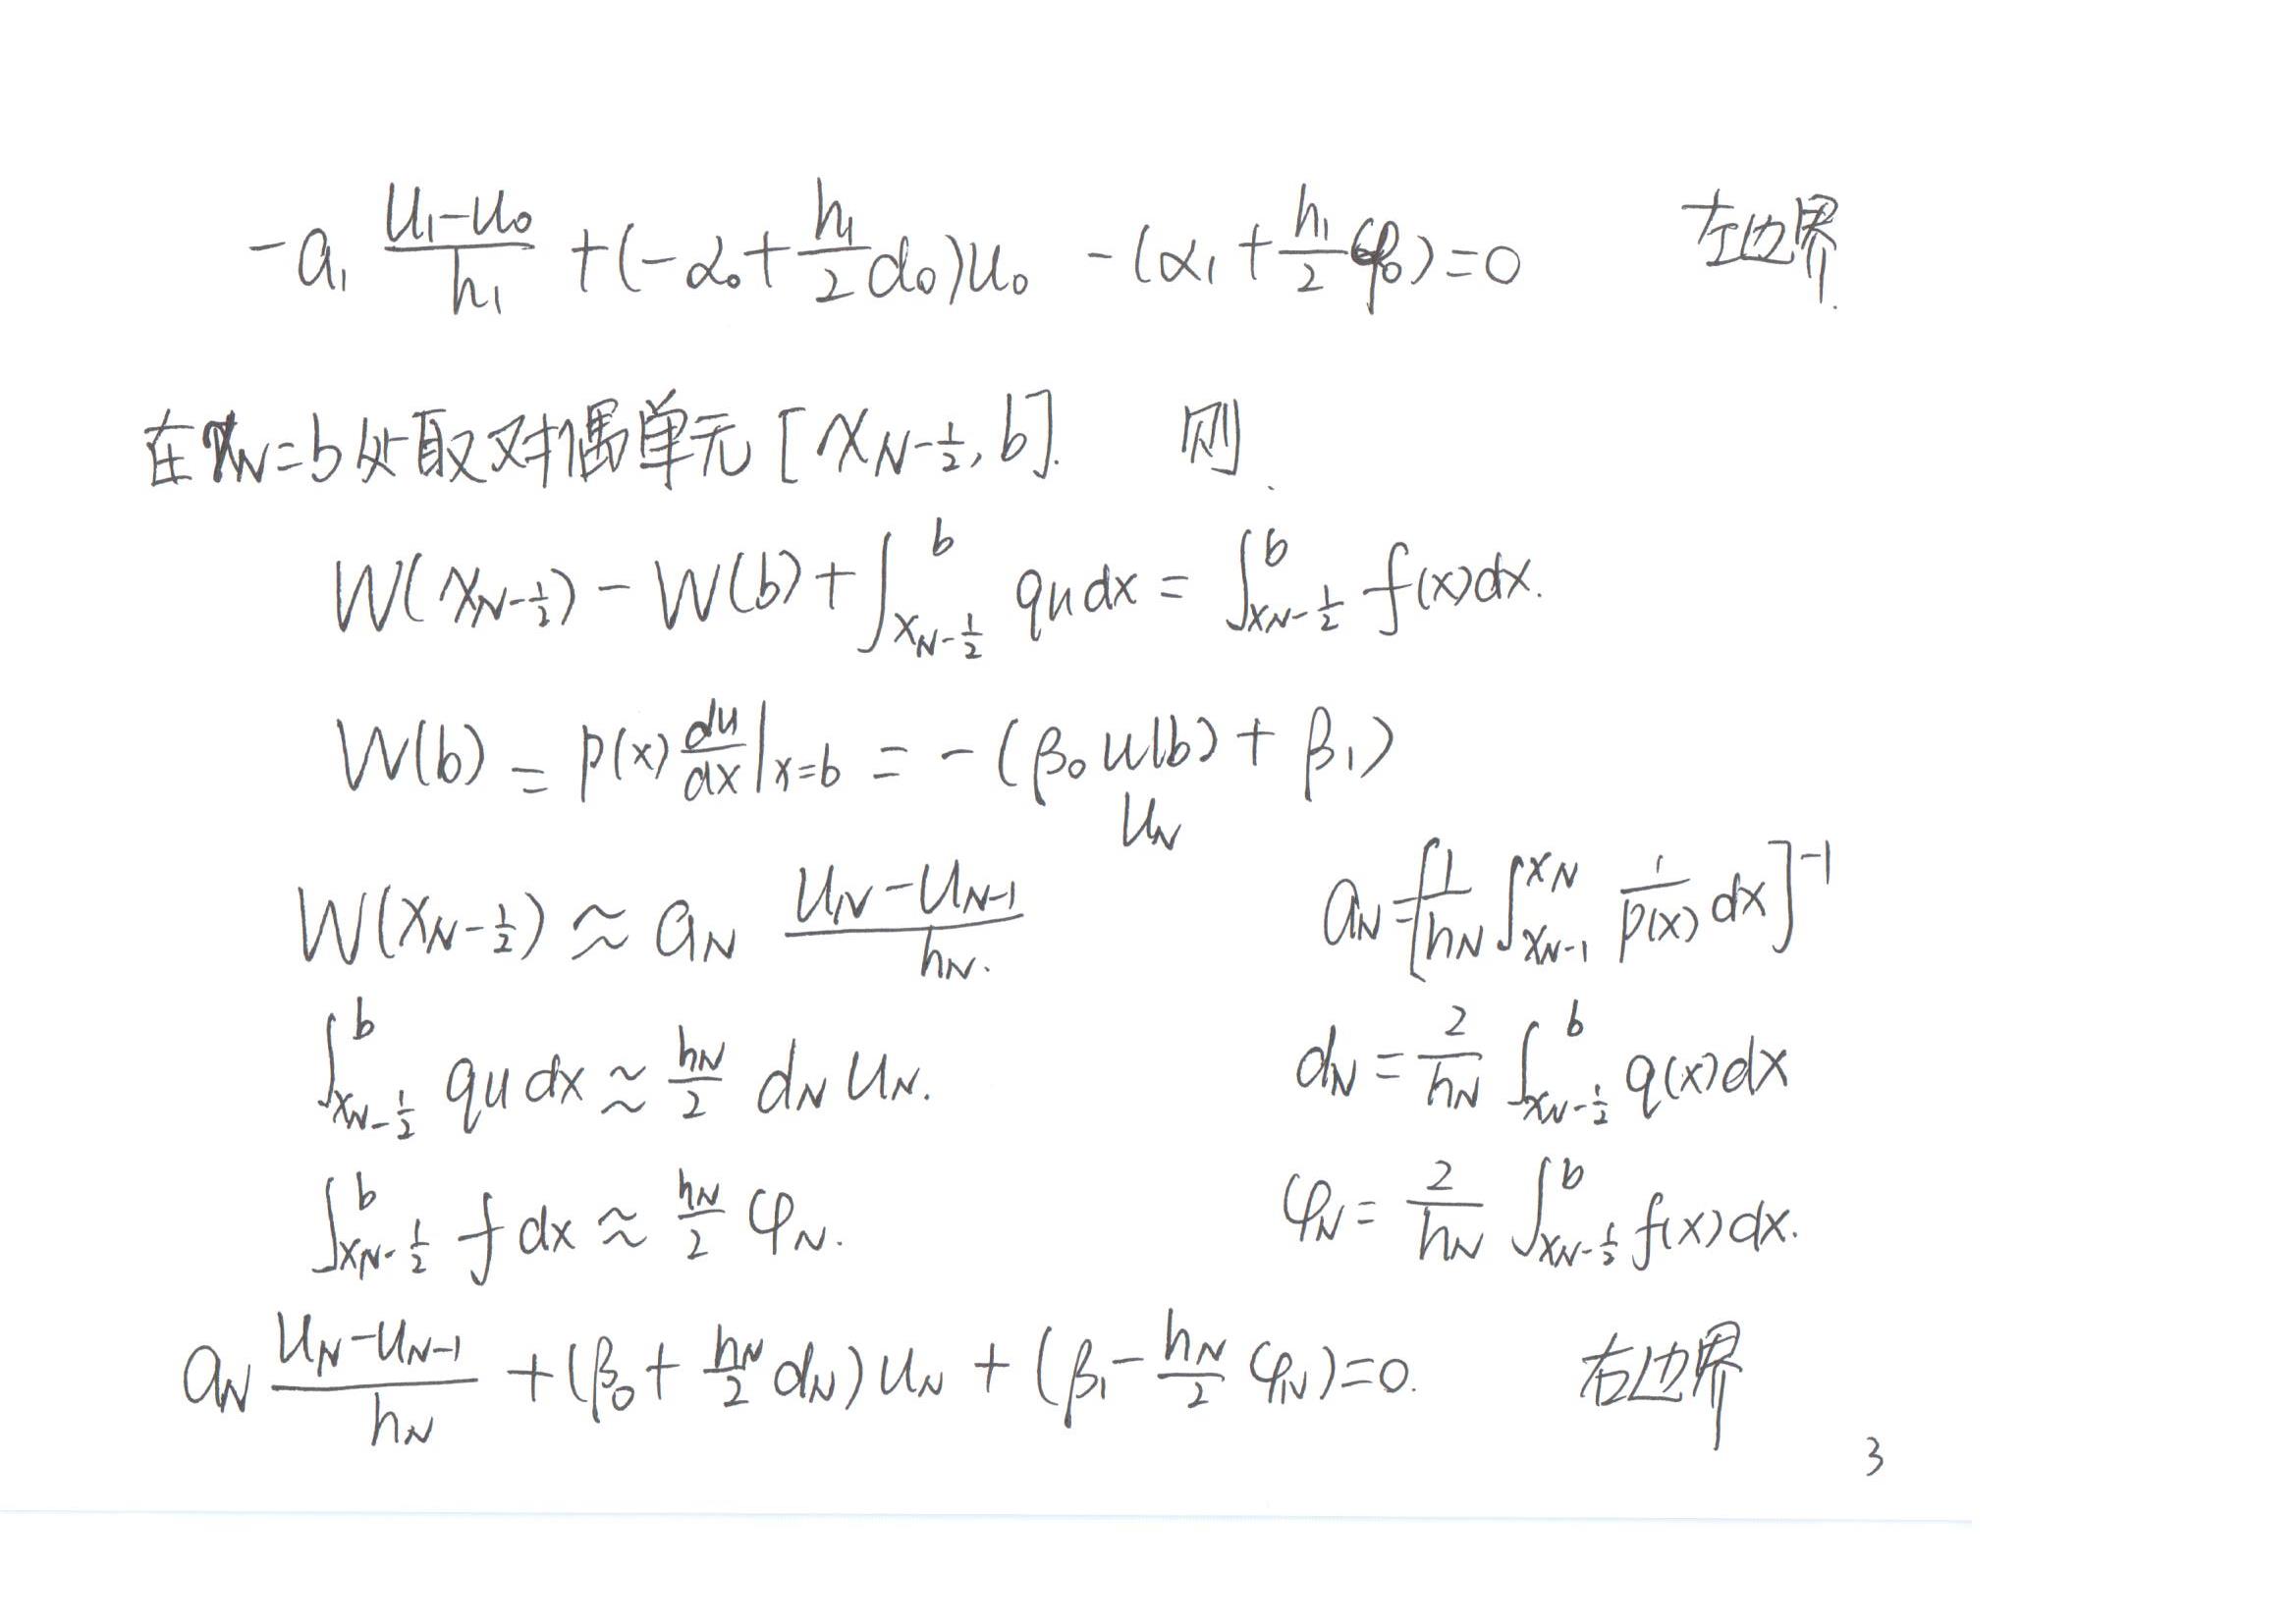 -a₁ (u₁-u₀)/h₁ +(-α₀+ h₁/2 d₀)u₀ -(α₁+ h₁/2 φ₀)=0 左边界.
在x_N=b处取对偶单元[x_{N-1/2}, b]. 则.
W(x_{N-1/2}) - W(b) + ∫_{x_{N-1/2}}^{b} qu dx = ∫_{x_{N-1/2}}^{b} f(x)dx.
W(b) = p(x) du/dx |_{x=b} = -(β₀u(b)+β₁)
u_N
W(x_{N-1/2}) ≈ a_N (u_N-u_{N-1})/h_N. a_N=[1/h_N ∫_{x_{N-1}}^{x_N} 1/p(x) dx]^{-1}
∫_{x_{N-1/2}}^{b} qu dx ≈ h_N/2 d_N u_N. d_N = 2/h_N ∫_{x_{N-1/2}}^{b} q(x)dx
∫_{x_{N-1/2}}^{b} f dx ≈ h_N/2 φ_N. φ_N = 2/h_N ∫_{x_{N-1/2}}^{b} f(x)dx.
a_N (u_N-u_{N-1})/h_N +(β₀+ h_N/2 d_N)u_N + (β₁- h_N/2 φ_N)=0. 右边界
3